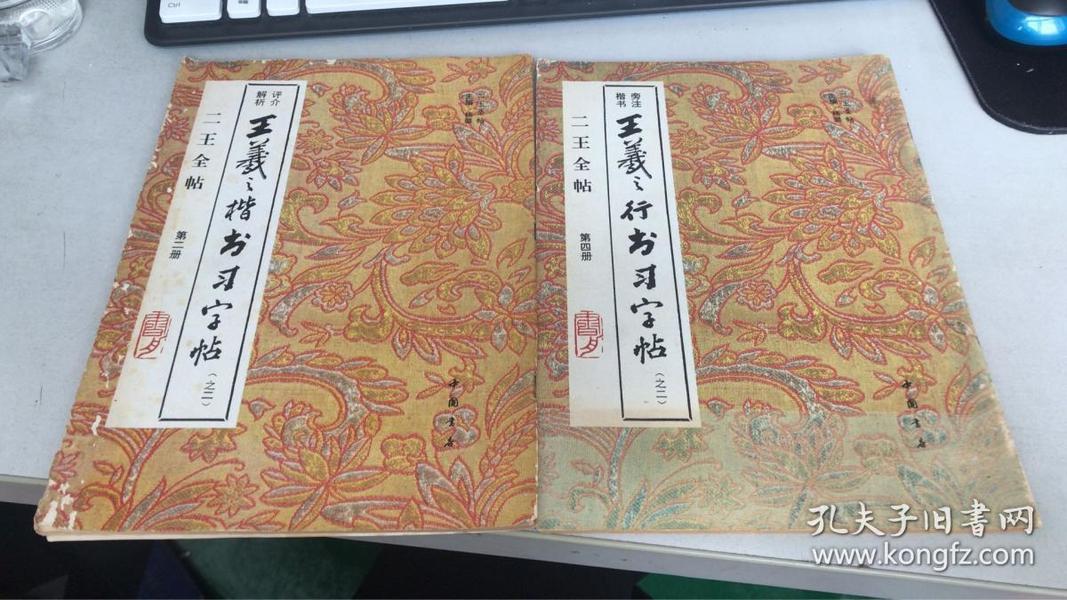 Ctrl
评介
解析
王羲之楷书习字帖
（之二）
二王全帖
第二册
中国书店
旁注
楷书
王羲之行书习字帖
（之二）
二王全帖
第四册
中国书店
孔夫子旧書网
www.kongfz.com